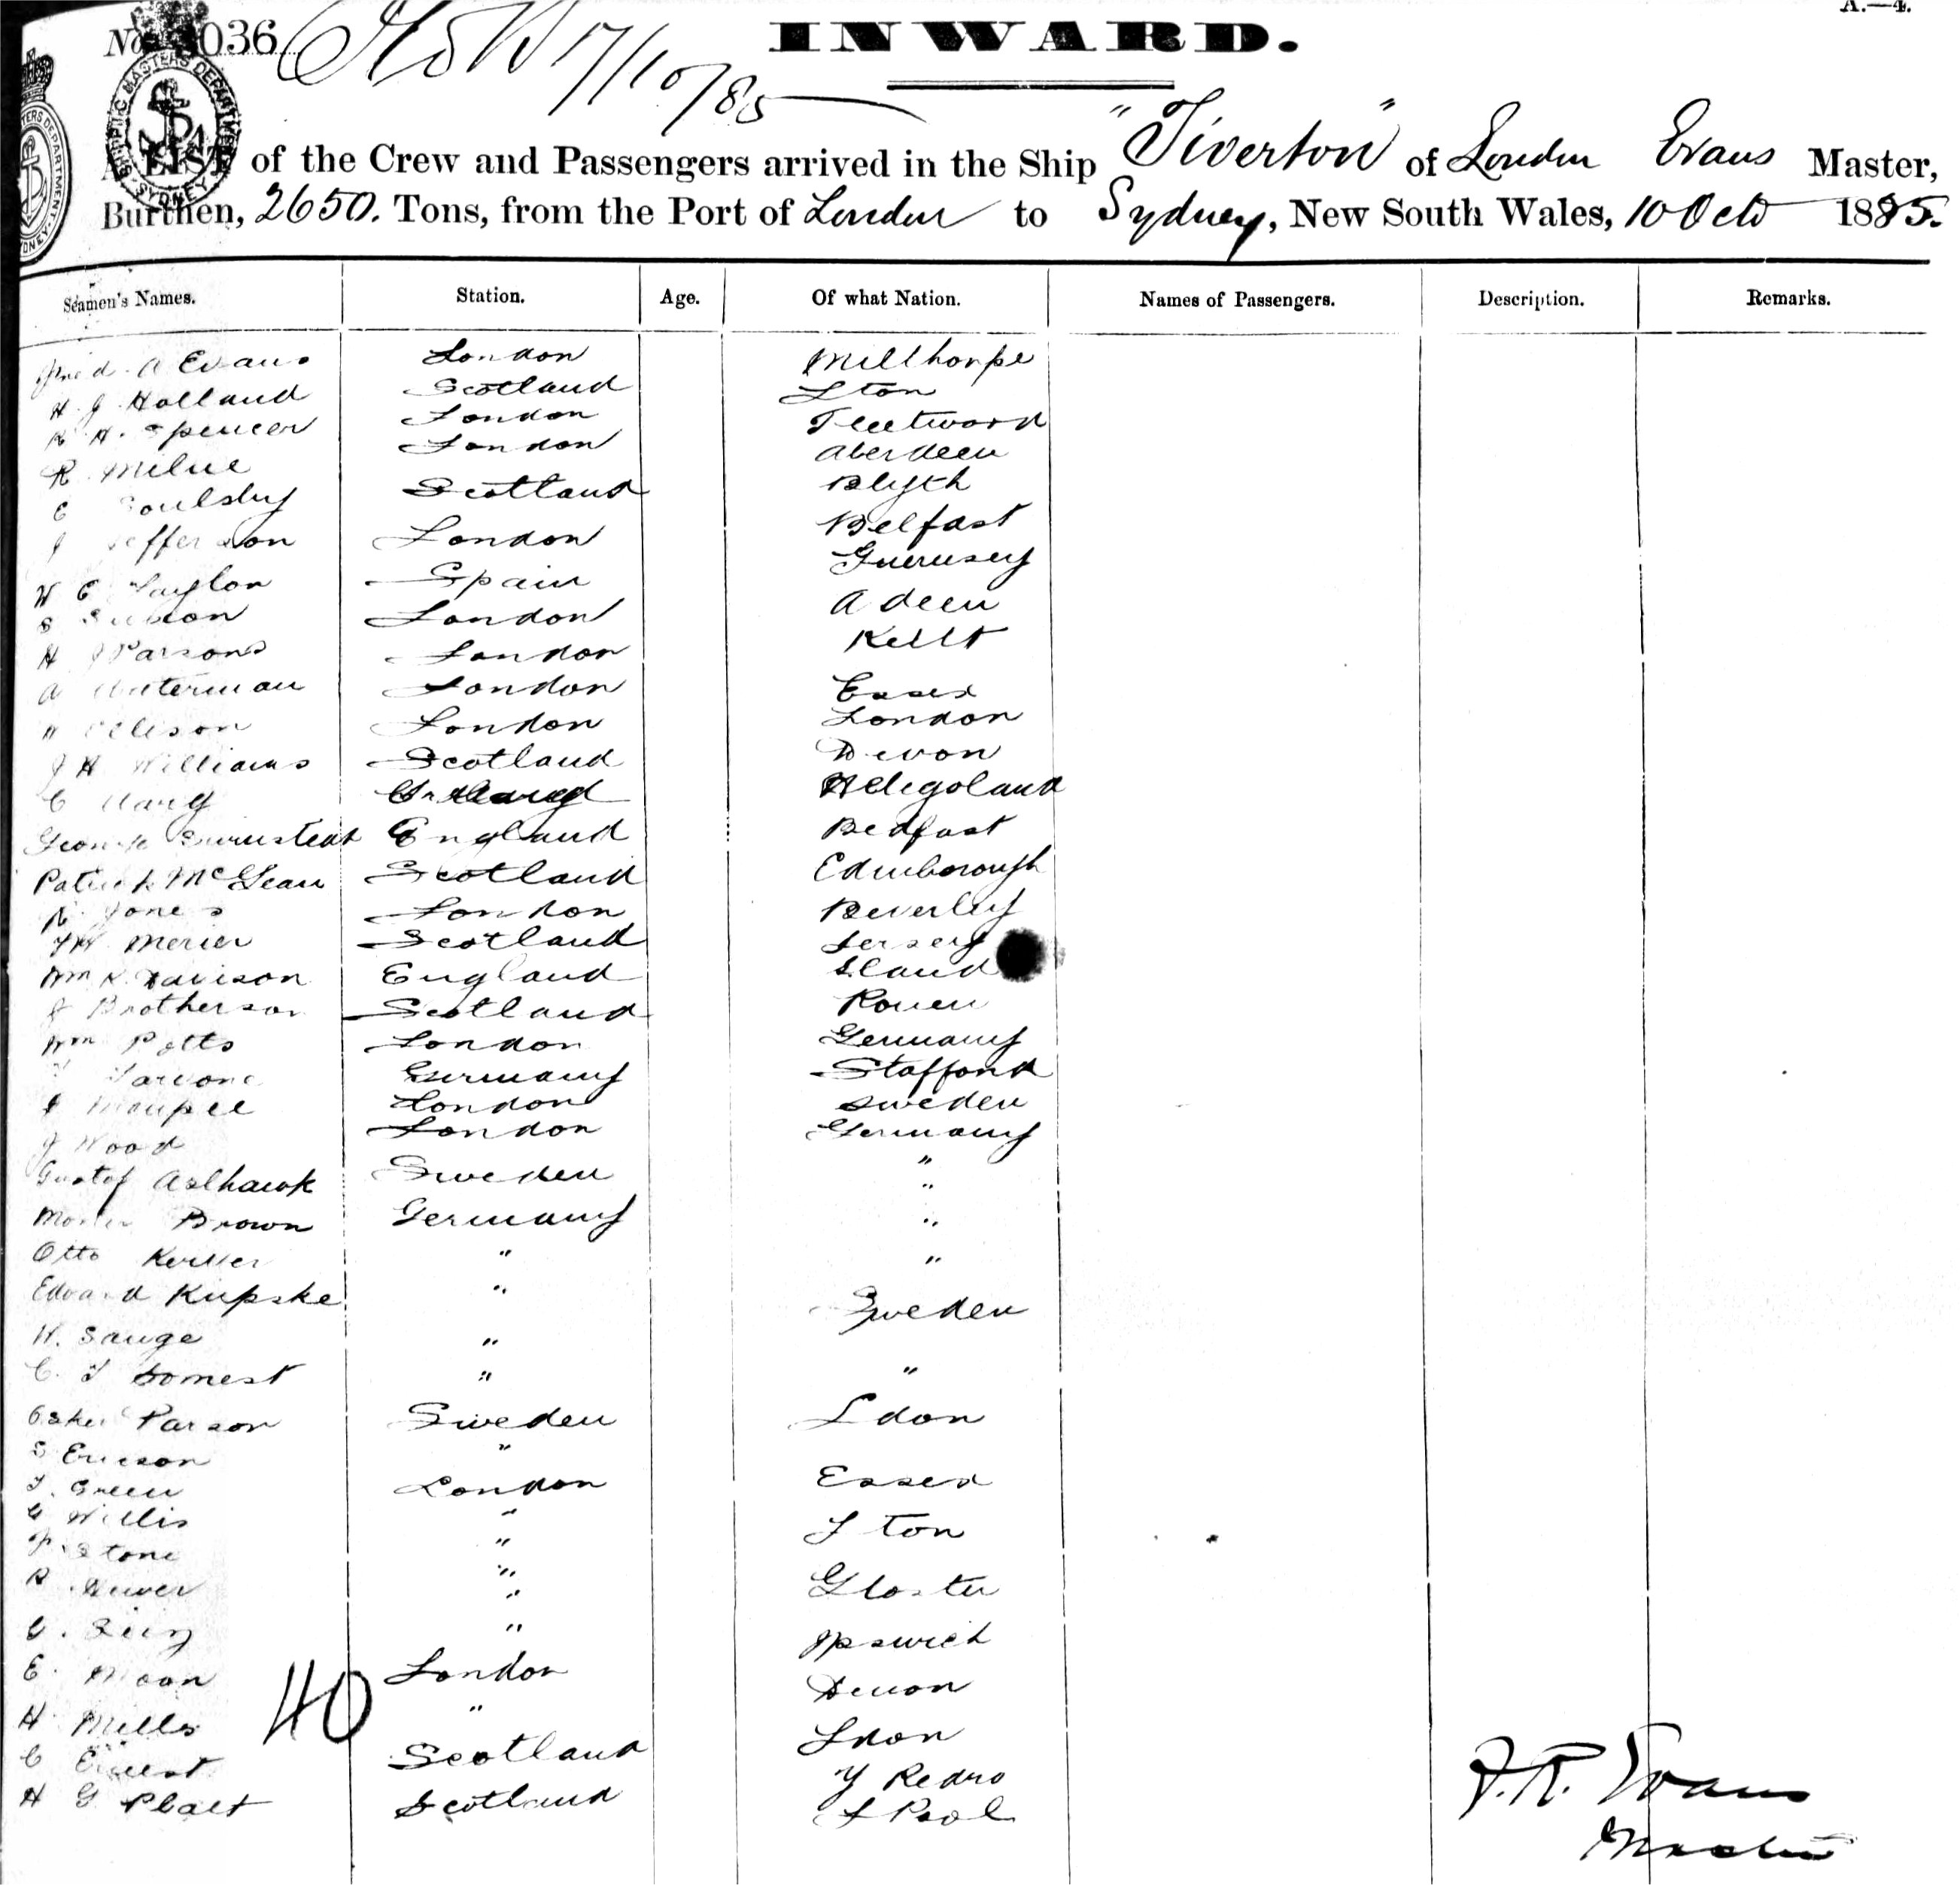 A.—4.
No. 036 17/10/85 INWARD.
SHIPPING MASTERS DEPARTMENT SYDNEY
A LIST of the Crew and Passengers arrived in the Ship "Tiverton" of London Evans Master,
Burthen, 2650. Tons, from the Port of London to Sydney, New South Wales, 10 Octo 1885.
Seamen's Names. Station. Age. Of what Nation. Names of Passengers. Description. Remarks.
Fred. A Evans London Millthorpe
H. J. Holland Scotland Lton
R H. Spencer London Fleetwood
R. Milne London Aberdeen
E Soulsby Scotland Blyth
J Jefferson London Belfast
W E Taylor Spain Guernsey
S London Adeen
H J Parsons London
A Waterman London Essex
W Ellison London London
J H Williams Scotland Devon
C Helegoland
George England Bedfast
Patrick McLean Scotland Edinborough
R. Jones London Beverley
Merier Scotland Jersey
Wm R. Davison England Sland
J Brotherson Scotland Rouen
Wm Potts London Germany
Germany Stafford
London Sweden
J Wood London Germany
Gustof Aslhawk Sweden "
Brown Germany "
Otto " "
Edward Kupske " "
W. Sauge " Sweden
C. F Somest " "
Oskar Parson Sweden Ldon
S Ericson "
T. Green London Essex
G Willis "
Stone " L ton
R. "
" Gloster
G. " Ipswich
E. Moon London Devon
H Mills " Ldon
C Ernest Scotland Y Redro
H G Plaet Scotland L Pool
40
F. R. Evans
Master